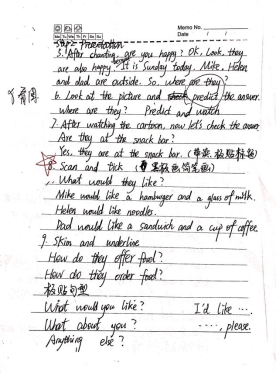 Memo No.
Mo Tu We Th Fr Sa Su
Date / /
Step 2 Presentation
5. After chanting, are you happy? Ok. Look, they
are also happy because It is Sunday today. Mike, Helen
and dad are outside. So, where are they?
6. Look at the picture and predict the answer.
where are they? Predict and watch
7. After watching the cartoon, now let's check the answer
Are they at the snack bar?
Yes, they are at the snack bar. (粘贴标题)
8. Scan and tick (黑板画简笔画)
What would they like?
Mike would like a hamburger and a glass of milk.
Helen would like noodles.
Dad would like a sandwich and a cup of coffee.
9. Skim and underline
How do they offer food?
How do they order food?
粘贴句型
What would you like? I'd like ....
What about you? ...., please.
Anything else?